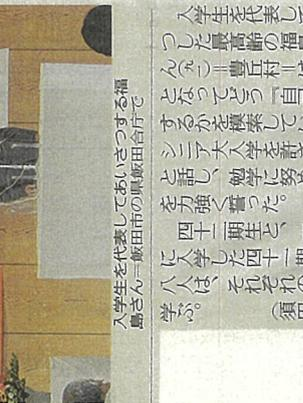 入学生を代表してあいさつする福
島さん＝飯田市の県飯田合庁で
入学生を代表して
つした最高齢の福
豊丘村
となってどう『自
するかを模索してい
シニア大入学を許さ
と話し、勉学に努め
を力強く誓った。
四十二期生と、
に入学した四十一期
八人は、それぞれの
学ぶ。
（須